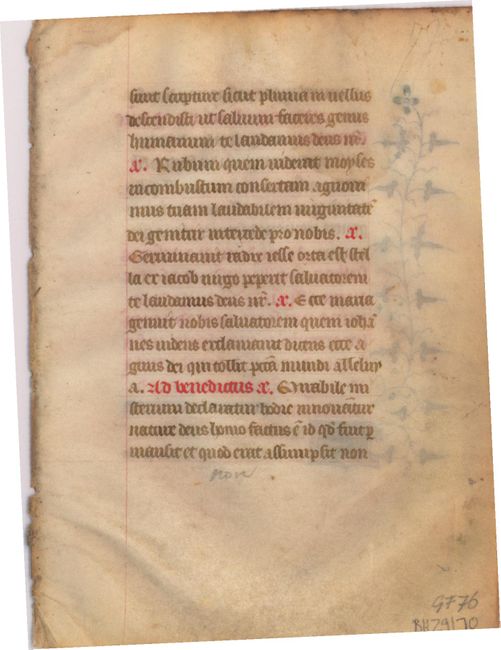 sunt scripture sicut pluuia in uellus
descendisti ut saluum faceres genus
humanum te laudamus deus nr̄.
a. Rubum quem uiderat moyses
incombustum conseruatam agnoui
mus tuam laudabilem uirginitatē
dei genitrix intercede pro nobis. a.
Germinauit radix iesse orta est stel
la ex iacob uirgo peperit saluatorem
te laudamus deus nr̄. a. Ecce maria
genuit nobis saluatorem quem iohā
nes uidens exclamauit dicens ecce a
gnus dei qui tollit pctā mundi alleluy
a. Ad benedictus a. Mirabile mi
sterium declaratur hodie innouātur
nature deus homo factus ē id qd̄ fuit ꝑ
mansit et quod erat assumpsit non
non
GF 76
BH29170